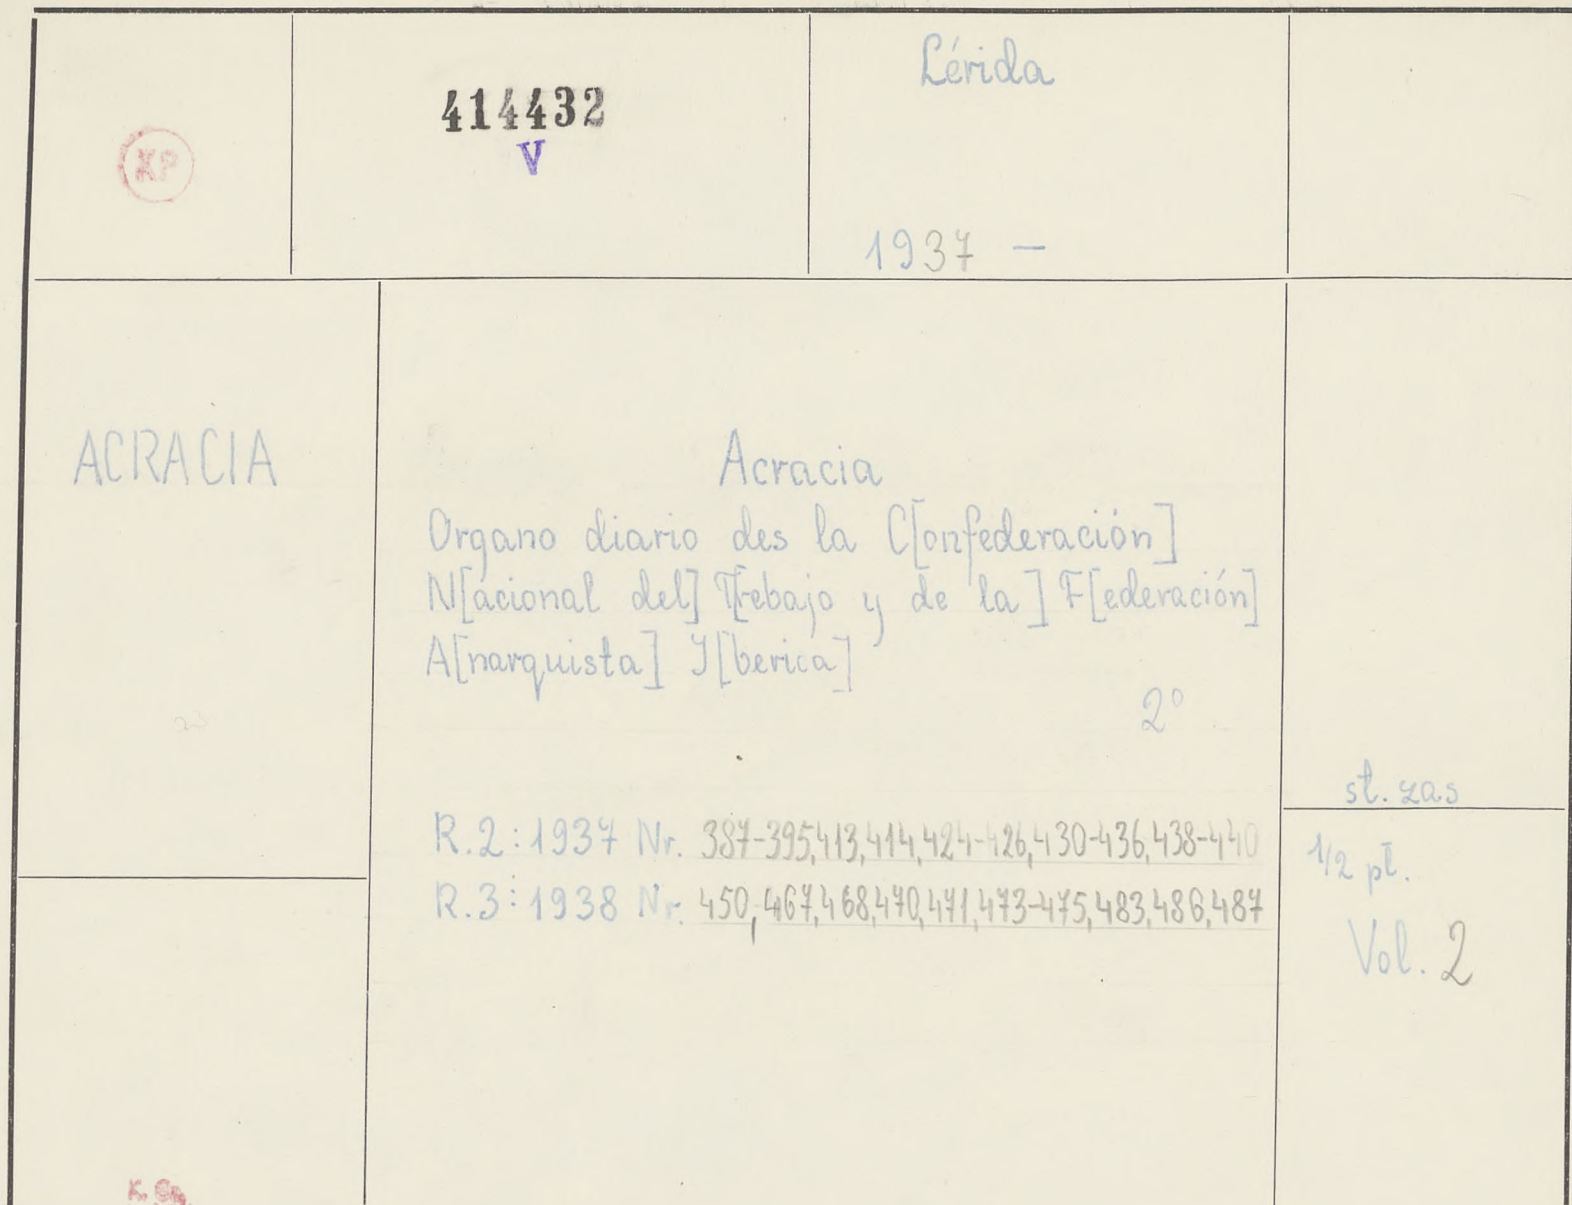 Lérida
414432
KP
V
1937 —
ACRACIA
Acracia
Organo diario des la C[onfederación]
N[acional del] T[rebajo y de la] F[ederación]
A[narquista] I[berica]
2°
st. zas
R.2: 1937 Nr. 387-395,413,414,424-426,430-436,438-440
1/2 pł.
R.3: 1938 Nr. 450,467,468,470,471,473-475,483,486,487
Vol. 2